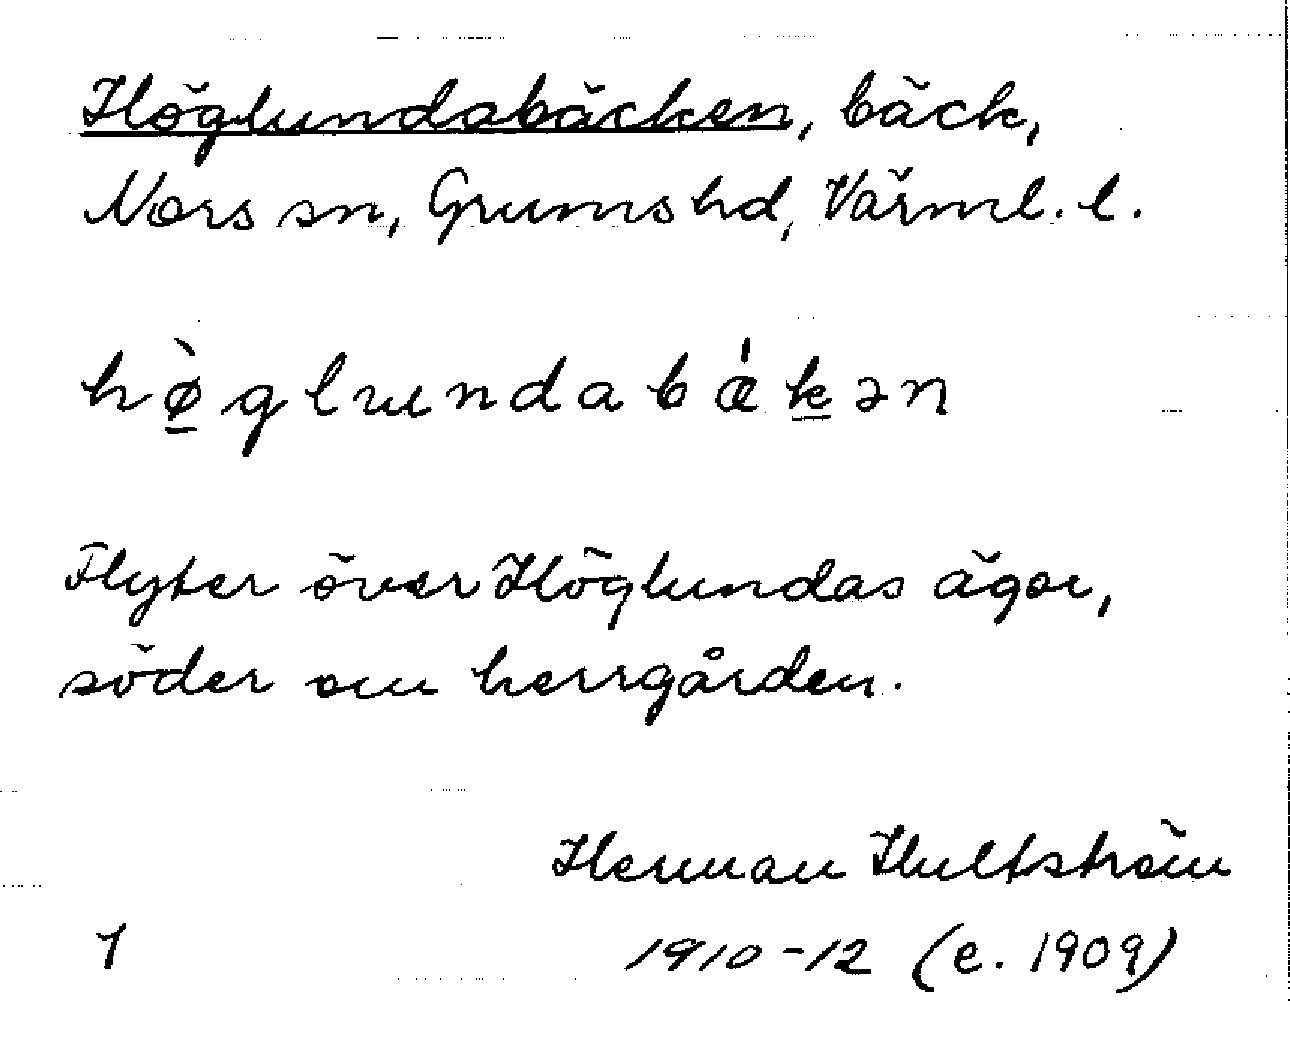 Höglundabäcken, bäck,
Nors sn, Grums hd, Värml. l.
hø̀glundabǽkən
Flyter över Höglundas ägor,
söder om herrgården.
Herman Hultström
1 1910-12 (e. 1909)